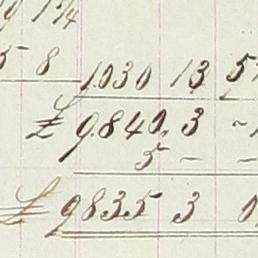 9 1¼
5 8 1030 13 5
£ 9.840. 3 ~
5 – –
£ 9835 3 0